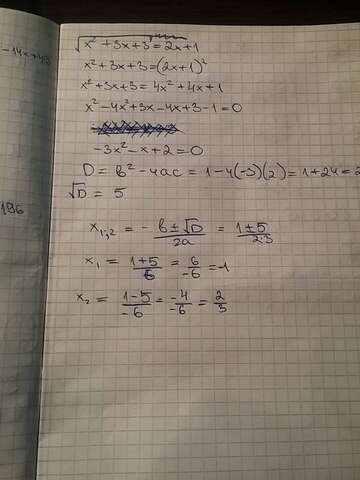 -14x+49
√x²+3x+3=2x+1
x²+3x+3=(2x+1)²
x²+3x+3=4x²+4x+1
x²-4x²+3x-4x+3-1=0
-3x²-x+2=0
D=b²-4ac=1-4(-3)(2)=1+24=2
√D=5
196
x₁,₂=-b±√D/2a=1±5/2·3
x₁=1+5/6=6/-6=-1
x₂=1-5/-6=-4/-6=2/3